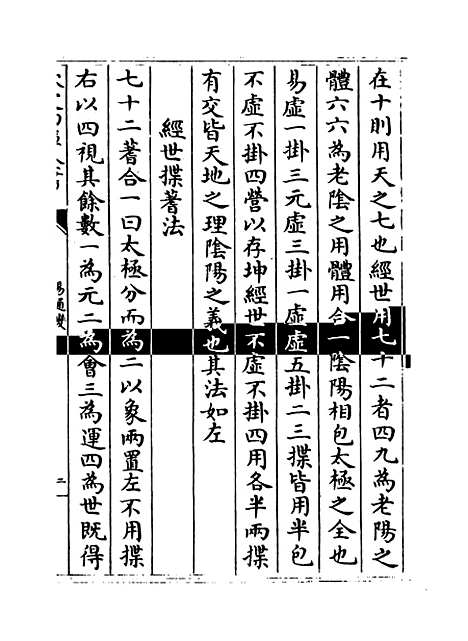 在十則用天之七也經世用七十二者四九為老陽之
體六六為老陰之用體用合一陰陽相包太極之全也
易虛一掛三元虛三掛一虛虛五掛二三揲皆用半包
不虛不掛四營以存坤經世不虛不掛四用各半兩揲
有交皆天地之理陰陽之義也其法如左
經世揲蓍法
七十二蓍合一曰太極分而為二以象兩置左不用揲
右以四視其餘數一為元二為會三為運四為世既得
易通變
二